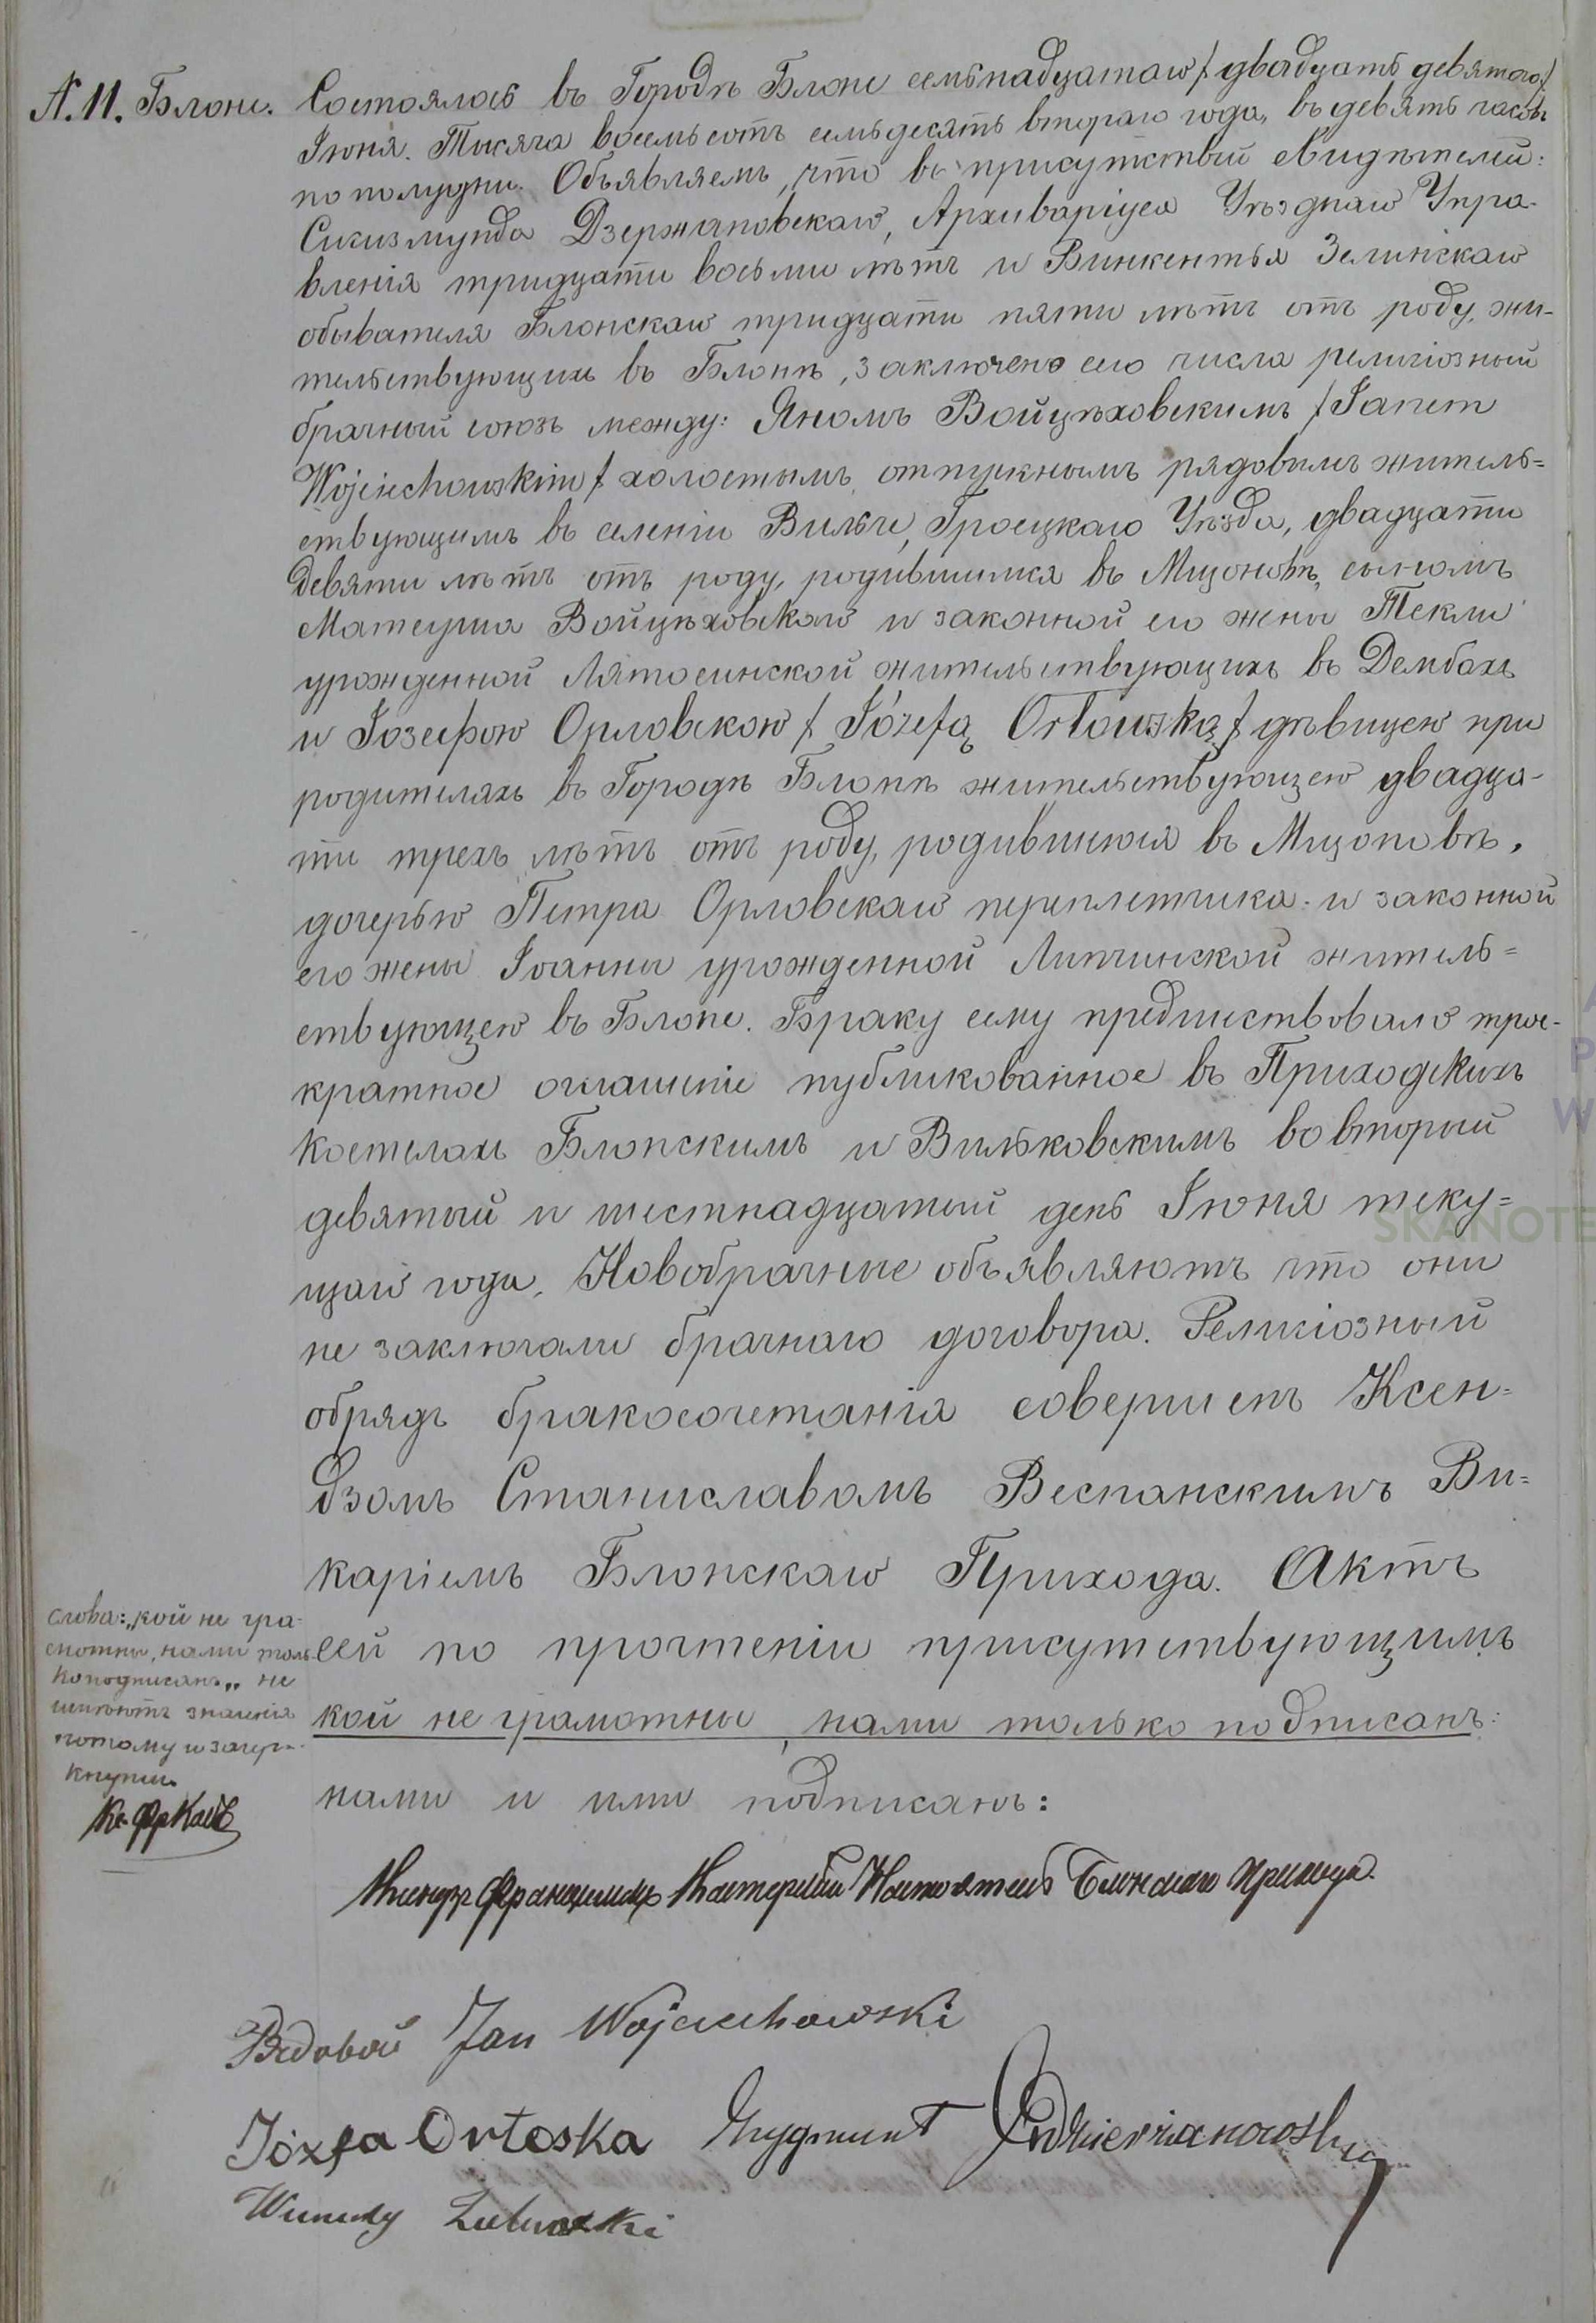 N. 11. Блоне. Состоялось въ Городѣ Блоне семьнадцатаго / двадцать девятаго /
Іюня. Тысяча восемьсотъ семьдесятъ втораго года, въ девять часовъ
по полудни. Объявляемъ, что въ присутствіи свидѣтелей:
Сигизмунда Дзержановскаго, Архиваріуса Уѣзднаго Упра-
вленія тридцати восьми лѣтъ и Винкентья Зелинскаго
обывателя Блонскаго тридцати пяти лѣтъ отъ роду, жи-
тельствующихъ въ Блонѣ, заключено сего числа религіозный
брачный союзъ между: Яномъ Войцѣховскимъ / Janem
Wojciechowskim / холостымъ отпускнымъ рядовымъ житель=
ствующимъ въ селеніи Вильче, Гроецкаго Уѣзда, двадцати
девяти лѣтъ отъ роду, родившимся въ Мщоновѣ, сыномъ
Матеуша Войцѣховскаго и законной его жены Текли
урожденной Лятосинской жительствующихъ въ Дембахъ
и Іозефою Орловскою / Józefą Orłowską / дѣвицею при
родителяхъ въ Городѣ Блонѣ жительствующею двадца-
ти трехъ лѣтъ отъ роду, родившиюся въ Мщоновѣ,
дочерью Петра Орловскаго переплетчика и законной
его жены Іоанны урожденной Липчинской житель=
ствующею въ Блоне. Браку сему предшествовало трое-
кратное оглашеніе публикованное въ Приходскихъ
Костелахъ Блонскимъ и Вильковскимъ во вторый
девятый и шестнадцатый день Іюня теку=
щаго года. Новобрачные объявляютъ что они
не заключали брачнаго договора. Религіозный
обрядъ бракосочетанія совершенъ Ксен=
дзомъ Станиславомъ Веспанскимъ Ви=
каріемъ Блонскаго Прихода. Актъ
сей по прочтеніи присутствующимъ
кои не грамотны, нами только подписанъ:
нами и ими подписанъ:
слова: „кои не гра-
мотны, нами толь
ко подписанъ„ не
имѣютъ значенія
потому и зачер-
кнуты.
Кс. Фр Каст
Ксендзъ Францишекъ Кастерскій Настоятель Блонскаго Прихода.
Рядовой Jan Wojciechowski
Józfa Orłoska Zygmunt Dzierżanowski